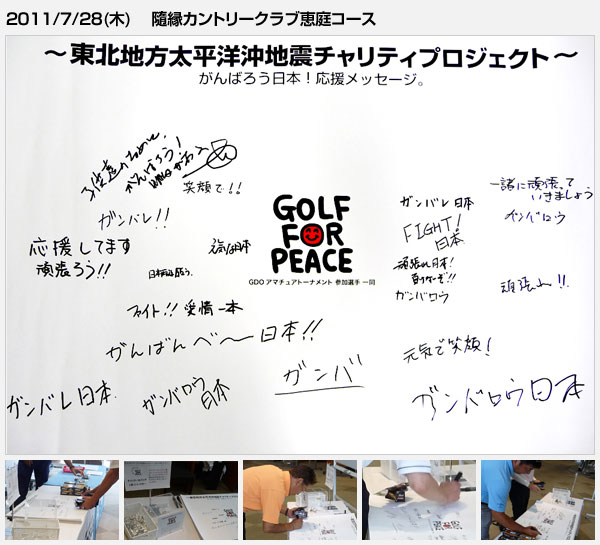 2011/7/28(木) 随縁カントリークラブ恵庭コース
～東北地方太平洋沖地震チャリティプロジェクト～
がんばろう日本！応援メッセージ。
がんばろう！
笑顔で！！
ガンバレ！！
応援してます
頑張ろう！！
ファイト！！ 愛情一本
がんばんべ～日本！！
ガンバレ日本
ガンバロウ
日本
ガンバ
GOLF
FOR
PEACE
GDO アマチュアトーナメント 参加選手 一同
ガンバレ日本
FIGHT!
日本
頑張れ日本！
負けるなぞ！！
ガンバロウ
一諸に頑張って
いきましょう
ガンバロウ
頑張れ！！
元気で笑顔！
ガンバロウ日本